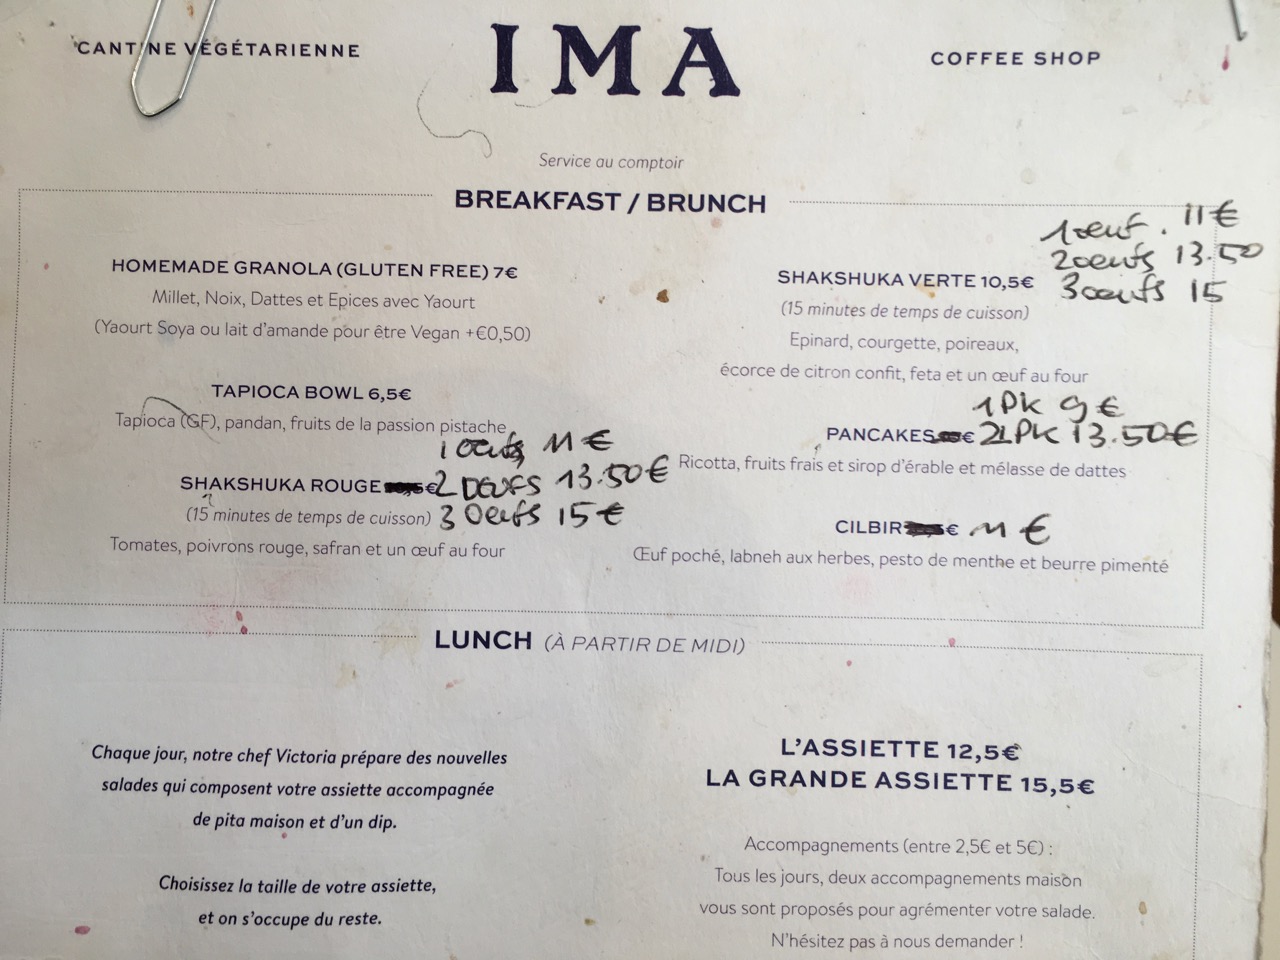 CANTINE VÉGÉTARIENNE
IMA
COFFEE SHOP
Service au comptoir
BREAKFAST / BRUNCH
HOMEMADE GRANOLA (GLUTEN FREE) 7€
Millet, Noix, Dattes et Epices avec Yaourt
(Yaourt Soya ou lait d'amande pour être Vegan +€0,50)
TAPIOCA BOWL 6,5€
Tapioca (GF), pandan, fruits de la passion pistache
1 oeufs 11€
SHAKSHUKA ROUGE € 2 OEUFS 13.50€
(15 minutes de temps de cuisson) 3 Oeufs 15€
Tomates, poivrons rouge, safran et un œuf au four
1 oeuf. 11€
2 oeufs 13.50
SHAKSHUKA VERTE 10,5€ 3 oeufs 15
(15 minutes de temps de cuisson)
Epinard, courgette, poireaux,
écorce de citron confit, feta et un œuf au four
1 PK 9€
PANCAKES € 2 PK 13.50€
Ricotta, fruits frais et sirop d'érable et mélasse de dattes
CILBIR € 11€
Œuf poché, labneh aux herbes, pesto de menthe et beurre pimenté
LUNCH (À PARTIR DE MIDI)
Chaque jour, notre chef Victoria prépare des nouvelles
salades qui composent votre assiette accompagnée
de pita maison et d'un dip.
Choisissez la taille de votre assiette,
et on s'occupe du reste.
L'ASSIETTE 12,5€
LA GRANDE ASSIETTE 15,5€
Accompagnements (entre 2,5€ et 5€) :
Tous les jours, deux accompagnements maison
vous sont proposés pour agrémenter votre salade.
N'hésitez pas à nous demander !